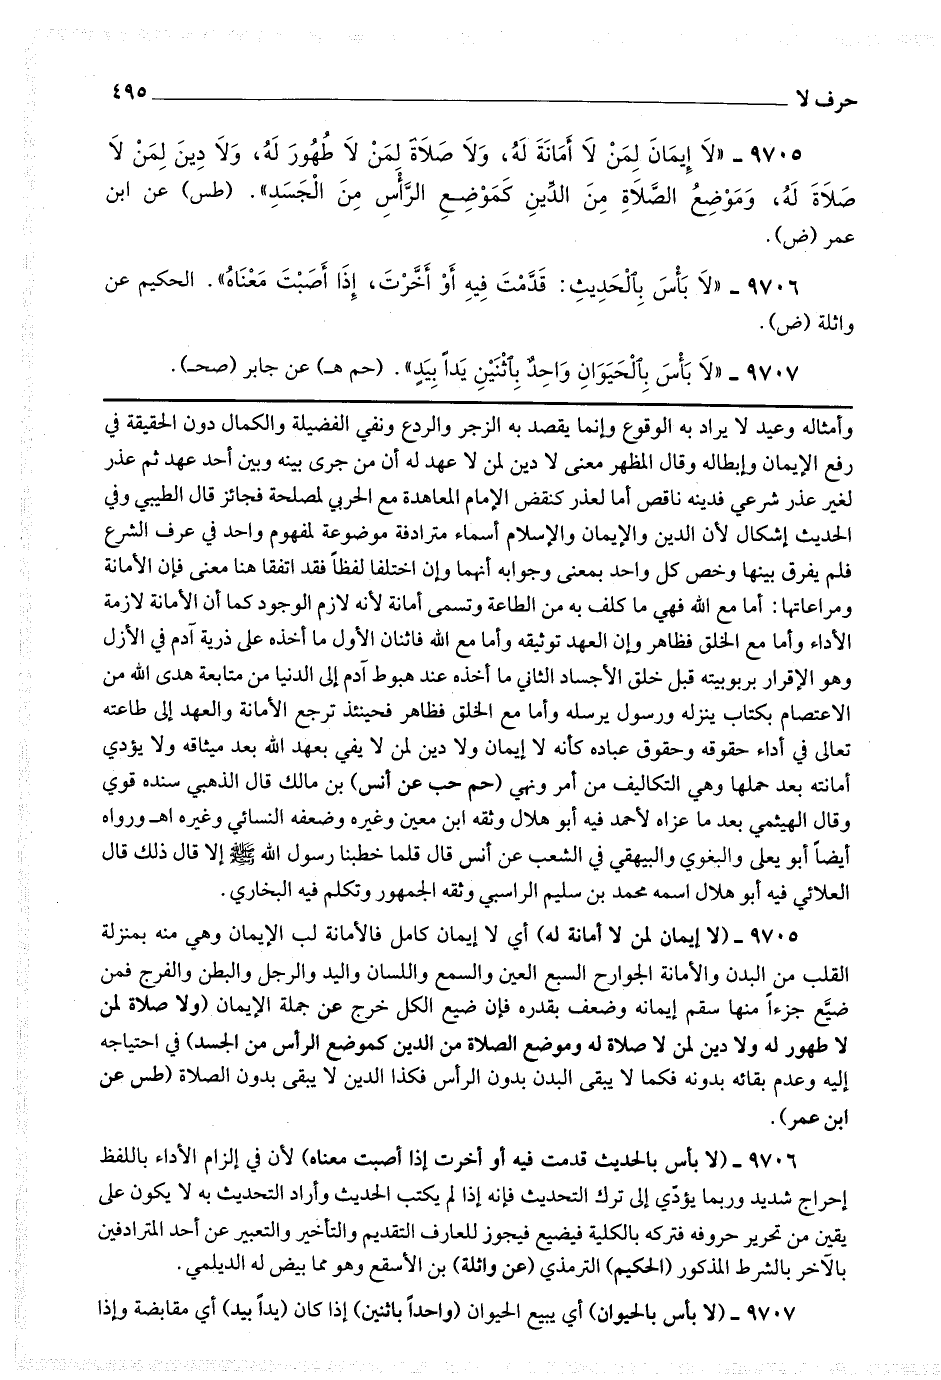 حرف لا ٤٩٥
٩٧٠٥ ـ «لَا إِيمَانَ لِمَنْ لَا أَمَانَةَ لَهُ، وَلَا صَلَاةَ لِمَنْ لَا طُهُورَ لَهُ، وَلَا دِينَ لِمَنْ لَا
صَلَاةَ لَهُ، وَمَوْضِعُ الصَّلَاةِ مِنَ الدِّينِ كَمَوْضِعِ الرَّأْسِ مِنَ الْجَسَدِ». (طس) عن ابن
عمر (ض).
٩٧٠٦ ـ «لَا بَأْسَ بِالْحَدِيثِ: قَدَّمْتَ فِيهِ أَوْ أَخَّرْتَ، إِذَا أَصَبْتَ مَعْنَاهُ». الحكيم عن
واثلة (ض).
٩٧٠٧ ـ «لَا بَأْسَ بِالْحَيَوَانِ وَاحِدٌ بِاثْنَيْنِ يَداً بِيَدٍ». (حم هـ) عن جابر (صحـ).
وأمثاله وعيد لا يراد به الوقوع وإنما يقصد به الزجر والردع ونفي الفضيلة والكمال دون الحقيقة في
رفع الإيمان وإبطاله وقال المظهر معنى لا دين لمن لا عهد له أن من جرى بينه وبين أحد عهد ثم عذر
لغير عذر شرعي فدينه ناقص أما لعذر كنقض الإمام المعاهدة مع الحربي لمصلحة فجائز قال الطيبي وفي
الحديث إشكال لأن الدين والإيمان والإسلام أسماء مترادفة موضوعة لمفهوم واحد في عرف الشرع
فلم يفرق بينها وخص كل واحد بمعنى وجوابه أنهما وإن اختلفا لفظاً فقد اتفقا هنا معنى فإن الأمانة
ومراعاتها: أما مع الله فهي ما كلف به من الطاعة وتسمى أمانة لأنه لازم الوجود كما أن الأمانة لازمة
الأداء وأما مع الخلق فظاهر وإن العهد توثيقه وأما مع الله فاثنان الأول ما أخذه على ذرية آدم في الأزل
وهو الإقرار بربوبيته قبل خلق الأجساد الثاني ما أخذه عند هبوط آدم إلى الدنيا من متابعة هدى الله من
الاعتصام بكتاب ينزله ورسول يرسله وأما مع الخلق فظاهر فحينئذ ترجع الأمانة والعهد إلى طاعته
تعالى في أداء حقوقه وحقوق عباده كأنه لا إيمان ولا دين لمن لا يفي بعهد الله بعد ميثاقه ولا يؤدي
أمانته بعد حملها وهي التكاليف من أمر ونهي (حم حب عن أنس) بن مالك قال الذهبي سنده قوي
وقال الهيثمي بعد ما عزاه لأحمد فيه أبو هلال وثقه ابن معين وغيره وضعفه النسائي وغيره اهـ ورواه
أيضاً أبو يعلى والبغوي والبيهقي في الشعب عن أنس قال قلما خطبنا رسول الله ﷺ إلا قال ذلك قال
العلائي فيه أبو هلال اسمه محمد بن سليم الراسبي وثقه الجمهور وتكلم فيه البخاري.
٩٧٠٥ ـ (لا إيمان لمن لا أمانة له) أي لا إيمان كامل فالأمانة لب الإيمان وهي منه بمنزلة
القلب من البدن والأمانة الجوارح السبع العين والسمع واللسان واليد والرجل والبطن والفرج فمن
ضيَّع جزءاً منها سقم إيمانه وضعف بقدره فإن ضيع الكل خرج عن جملة الإيمان (ولا صلاة لمن
لا طهور له ولا دين لمن لا صلاة له وموضع الصلاة من الدين كموضع الرأس من الجسد) في احتياجه
إليه وعدم بقائه بدونه فكما لا يبقى البدن بدون الرأس فكذا الدين لا يبقى بدون الصلاة (طس عن
ابن عمر).
٩٧٠٦ ـ (لا بأس بالحديث قدمت فيه أو أخرت إذا أصبت معناه) لأن في إلزام الأداء باللفظ
إحراج شديد وربما يؤدّي إلى ترك التحديث فإنه إذا لم يكتب الحديث وأراد التحديث به لا يكون على
يقين من تحرير حروفه فتركه بالكلية فيضيع فيجوز للعارف التقديم والتأخير والتعبير عن أحد المترادفين
بالآخر بالشرط المذكور (الحكيم) الترمذي (عن واثلة) بن الأسقع وهو مما بيض له الديلمي.
٩٧٠٧ ـ (لا بأس بالحيوان) أي يبيع الحيوان (واحداً باثنين) إذا كان (يداً بيد) أي مقابضة وإذا